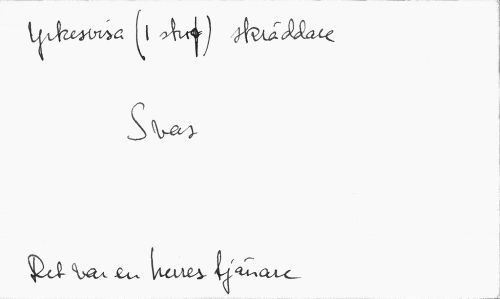 Yrkesvisa (1 strof) skräddare
Svas
Det var en herres tjänare